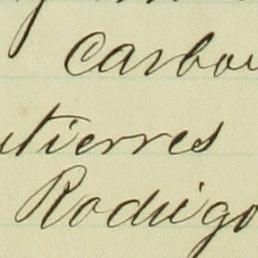 Carbou
utierres
Rodrigo